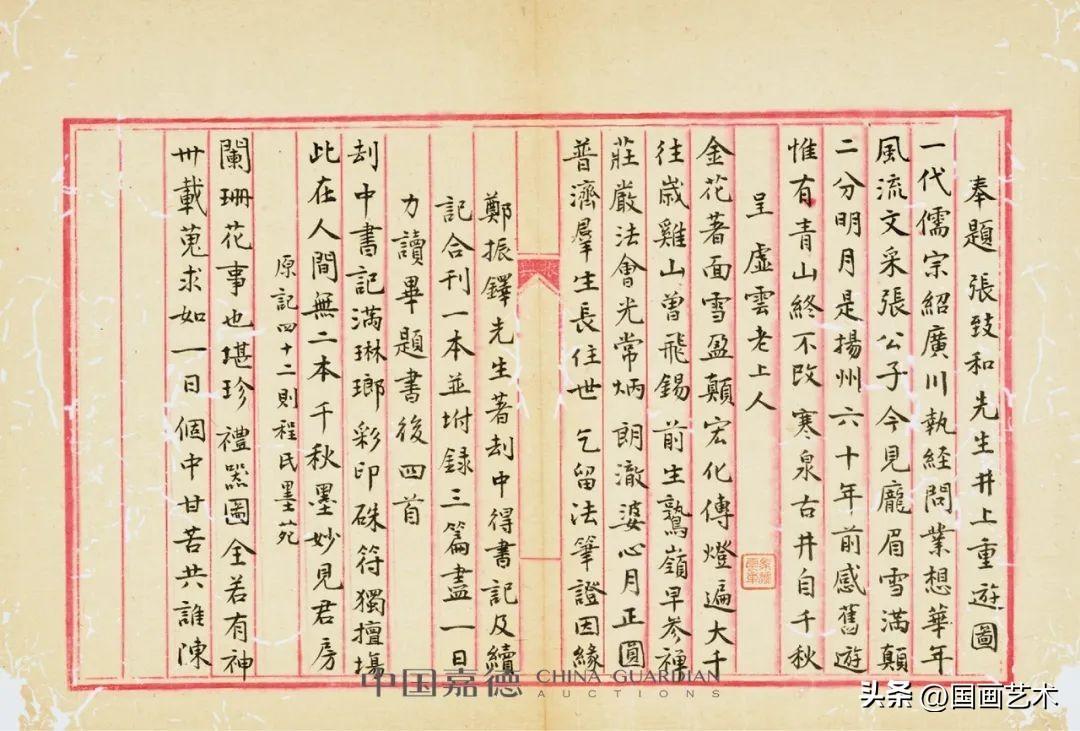 奉題 張致和先生井上重遊圖
一代儒宗紹廣川執経問業想華年
風流文采張公子今見龐眉雪滿顛
二分明月是揚州六十年前感舊遊
惟有青山終不改 寒泉古井自千秋
呈虛雲老上人
金花著面雪盈顛宏化傳燈遍大千
往歲雞山曾飛錫前生鷲嶺早參禪
莊嚴法會光常炳 朗澈婆心月正圓
普濟羣生長住世 乞留法筆證因緣
鄭振鐸先生著刦中得書記及續
記合刊一本並坿錄三篇盡一日
力讀畢題書後四首
刦中書記滿琳瑯彩印硃符獨擅場
此在人間無二本千秋墨妙見君房
原記四十二則程氏墨苑
闌珊花事也堪珍 禮噐圖全若有神
卅載蒐求如一日個中甘苦共誰陳
中国嘉德 CHINA GUARDIAN
AUCTIONS
头条 @国画艺术